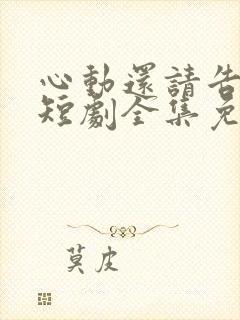 心動還請告
短劇全集免
莫皮